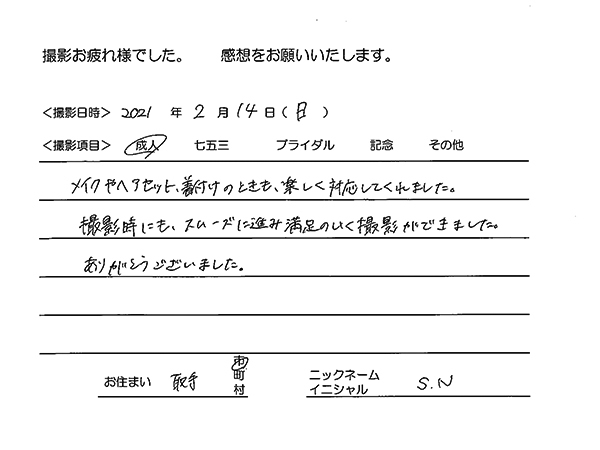 撮影お疲れ様でした。 感想をお願いいたします。
＜撮影日時＞ 2021 年 2 月 14 日（日）
＜撮影項目＞ 成人 七五三 ブライダル 記念 その他
メイクやヘアセット、着付けのときも、楽しく対応してくれました。
撮影時にも、スムーズに進み満足のいく撮影ができました。
ありがとうございました。
お住まい 取手 市 町 村 ニックネーム イニシャル S.N